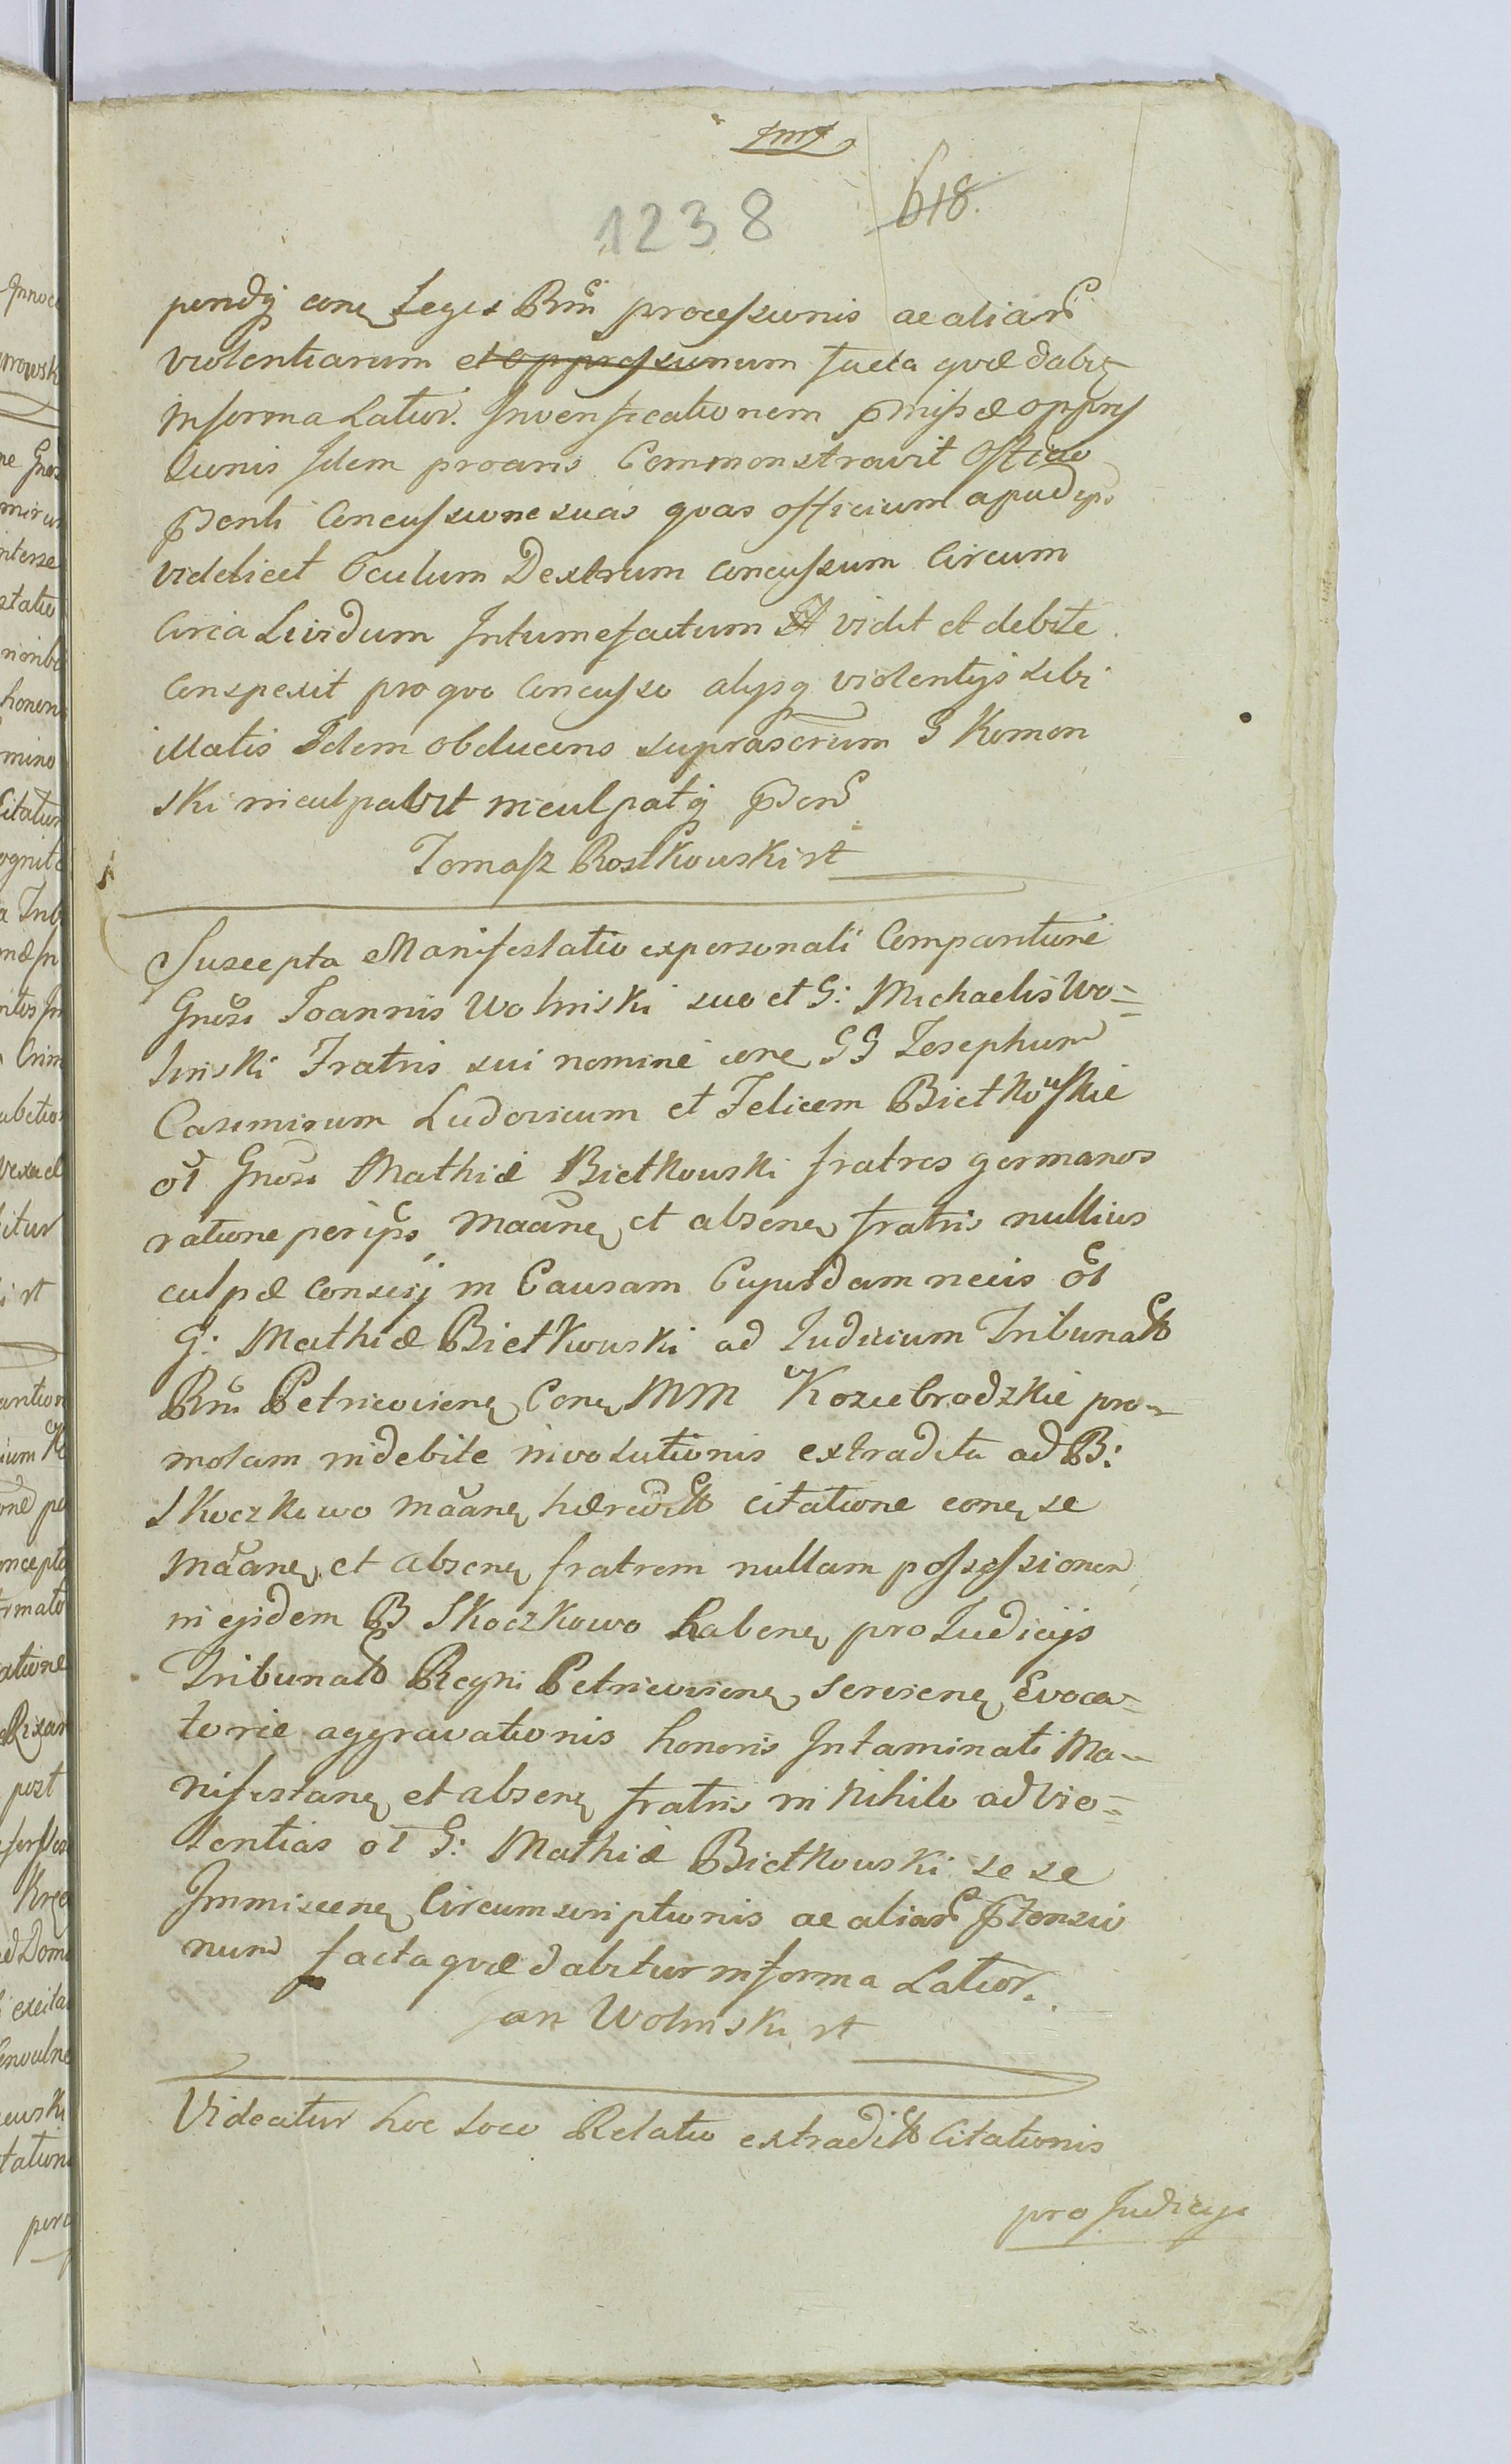 1238 618.
pendij conq Leges Rni processionis ac aliar
violentiarum et oppressionum facta quæ dabiq
in forma Latior. Inverificationem pmissæ oppres
sionis Idem procans Commonstravit Officio
pnti Concussione suas quas officium apud ipo
videlicet Oculum Dextrum concussum Circum
Circa Lividum Intumefactum vidit et debite
Conspexit pro quo Concusso alijsq violentijs sibi
illatis Idem obducens suprascrum G Komon
ski inculpabit inculpatq pnr
Tomasz Rostkowski rt
Suscepta Manifestatio expersonali Comparitione
Gnosi Joannis Wolinski suo et G: Michaelis Wo=
linski Fratris sui nomine cone GG Josephum
Casimirum Ludovicum et Felicem Bietkowskie
ol Gnosi Mathiæ Bietkowski fratres germanos
ratione per ipos maanq et absenq fratris nullius
culpæ conscij in Causam Cujusdam necis ol
G: Mathiæ Bietkowski ad Judicium Tribunal
Rni Petricovienq Conq MM Koziebrodzkie pro=
motam indebite involutionis extradita ad B:
Skoczkowo maanq hæredit citatione conq se
maanq et absenq fratrem nullam possessionem
in ejsdem B Skoczkowo habenq pro Judicijs
Tribunal Regni Petricovienq servienq Evoca=
toriæ aggravationis honoris Intaminati Ma=
nifestanq et absenq fratris in Nihilo ad Vio=
lentias ol G: Mathiæ Bietkowski se se
Immiscenq Circumscriptionis ac aliar ptensio
num facta quæ dabitur in forma Latior.
Jan Wolinski rt
Videatur hoc Loco Relatio extradit Citationis
pro Judicijs